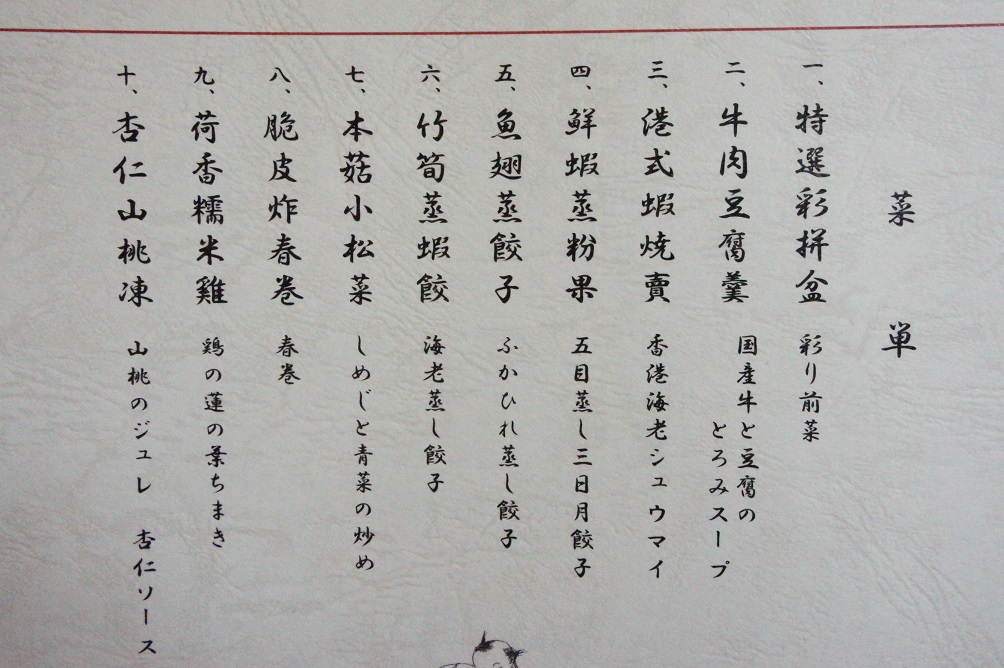 菜単
一、特選彩拼盆 彩り前菜
二、牛肉豆腐羹 国産牛と豆腐の
とろみスープ
三、港式蝦焼賣 香港海老シュウマイ
四、鮮蝦蒸粉果 五目蒸し三日月餃子
五、魚翅蒸餃子 ふかひれ蒸し餃子
六、竹筍蒸蝦餃 海老蒸し餃子
七、本菇小松菜 しめじと青菜の炒め
八、脆皮炸春巻 春巻
九、荷香糯米雞 鶏の蓮の葉ちまき
十、杏仁山桃凍 山桃のジュレ 杏仁ソース